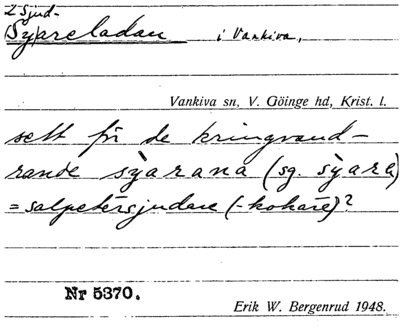 2 Sjud-
(Sy)areladan i Vankiva,
Vankiva sn, V. Göinge hd, Krist. l.
sett för de kringvand-
rande syarana (sg. syara)
= salpetersjudare (-kokare)?
Nr 5370.
Erik W. Bergenrud 1948.